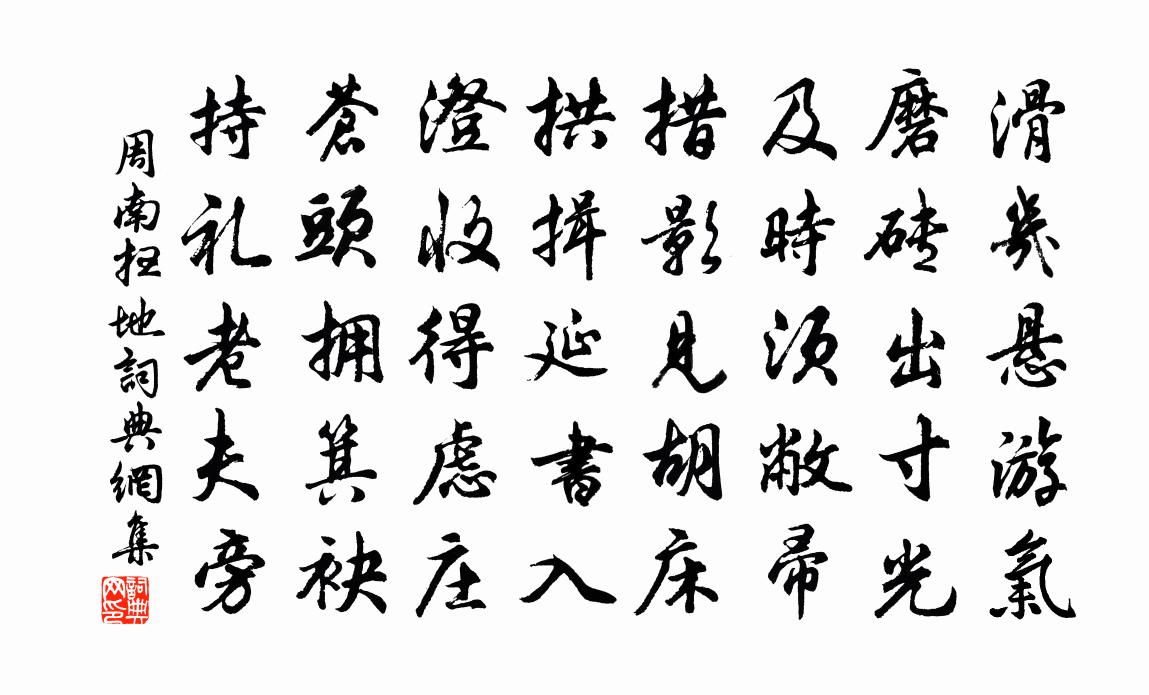 滑几悬游氣
磨砖出寸光
及時须敝帚
措影見胡床
拱揖延書入
澄收得慮庄
蒼頭拥箕袂
持礼老夫旁
周南扫地詞典網集
詞典